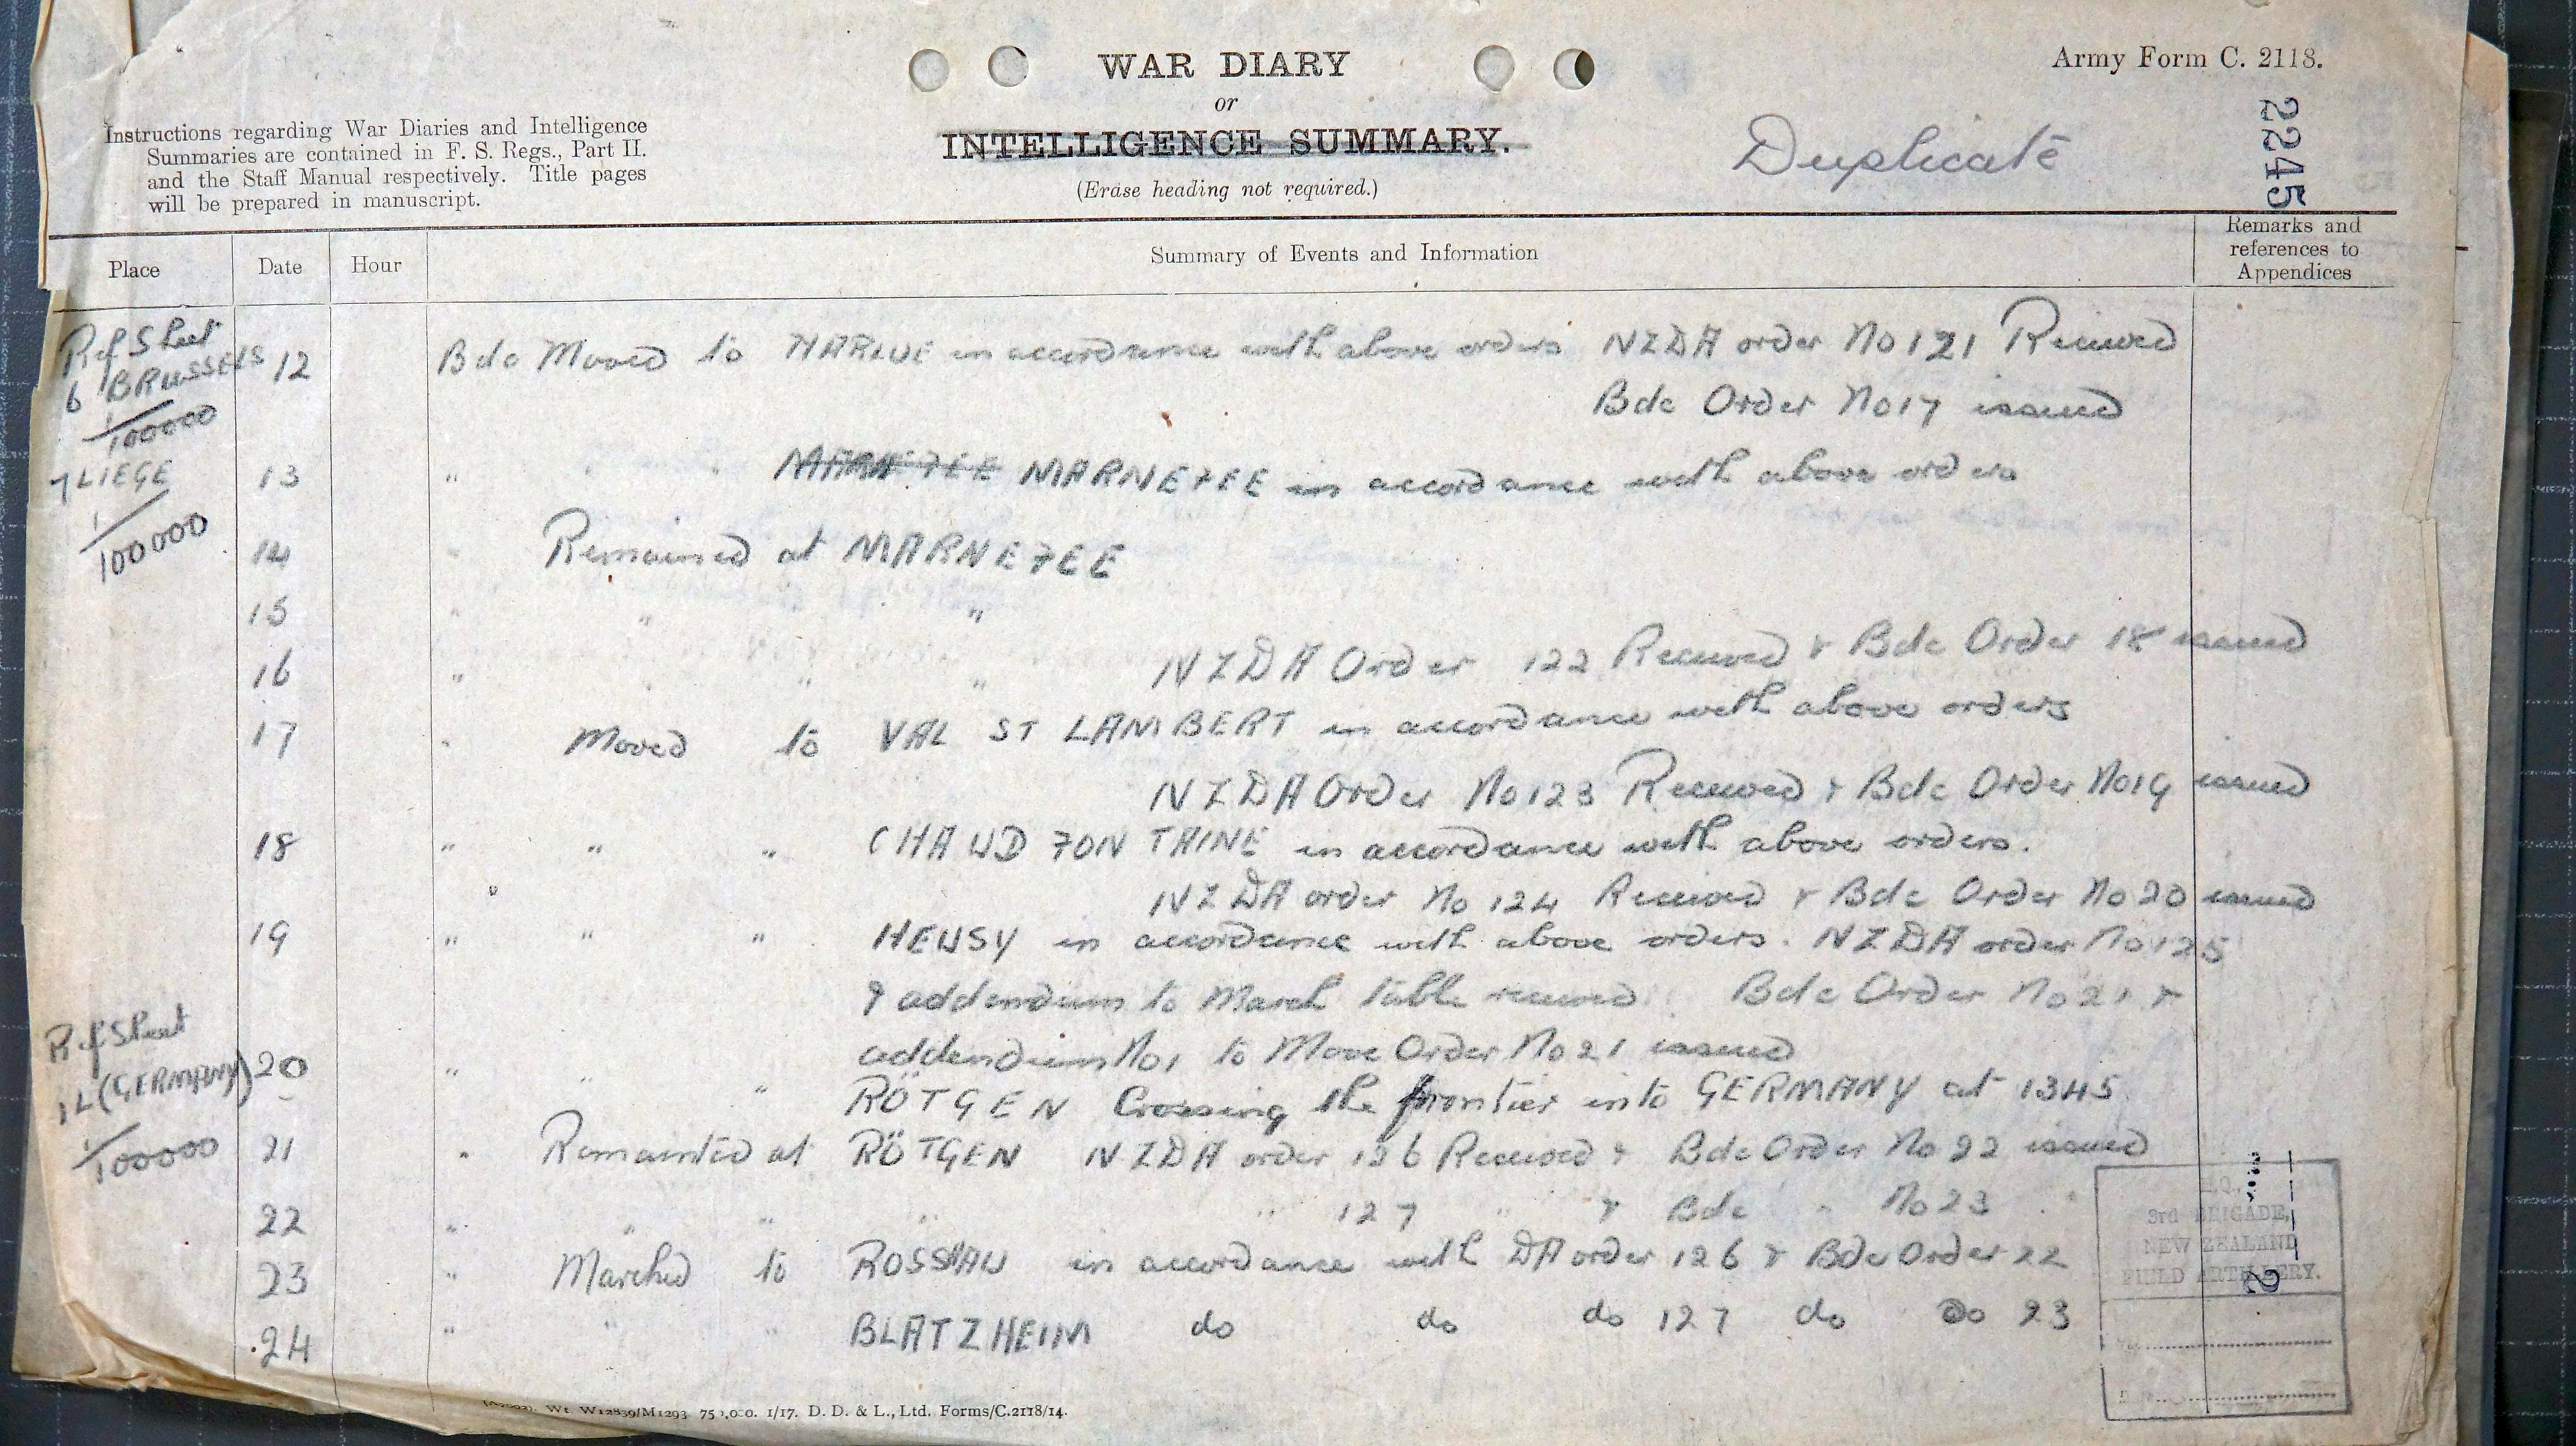 WAR DIARY
or
INTELLIGENCE SUMMARY.
(Erase heading not required.)
Army Form C. 2118.
Duplicate
2245
Instructions regarding War Diaries and Intelligence
Summaries are contained in F. S. Regs., Part II.
and the Staff Manual respectively. Title pages
will be prepared in manuscript.
Place Date Hour Summary of Events and Information Remarks and references to Appendices
Ref Sheet
6 BRUSSELS
1/100000
12 Bde Moved to HARLUE in accordance with above orders NZDA order No 121 Received
Bde Order No 17 issued
7 LIEGE
1/100000
13 " " " MARNEFEE in accordance with above orders
14 " Remained at MARNEFEE
15 " " "
16 " " " " NZDA Order 122 Received & Bde Order 18 issued
17 " Moved to VAL ST LAMBERT in accordance with above orders
NZDA Order No 123 Received & Bde Order No 19 issued
18 " " " CHAUD FONTAINE in accordance with above orders.
NZDA order No 124 Received & Bde Order No 20 issued
19 " " " HEUSY in accordance with above orders. NZDA order No 125
& addendum to March table received. Bde Order No 21 &
addendum No 1 to Move Order No 21 issued
Ref Sheet
1L (GERMANY)
1/100000
20 " " " RÖTGEN Crossing the frontier into GERMANY at 1345
21 " Remainted at RÖTGEN NZDA order 126 Received & Bde Order No 22 issued
22 " " " " " 127 " & Bde " No 23 "
23 " Marched to ROSSHAU in accordance with DA order 126 & Bde Order 22
24 " " " BLATZHEIM do do do 127 do do 23
H.Q.,
3rd BRIGADE,
NEW ZEALAND
FIELD ARTILLERY.
2
Wt. W12839/M1293 75 ,000. 1/17. D. D. & L., Ltd. Forms/C.2118/14.